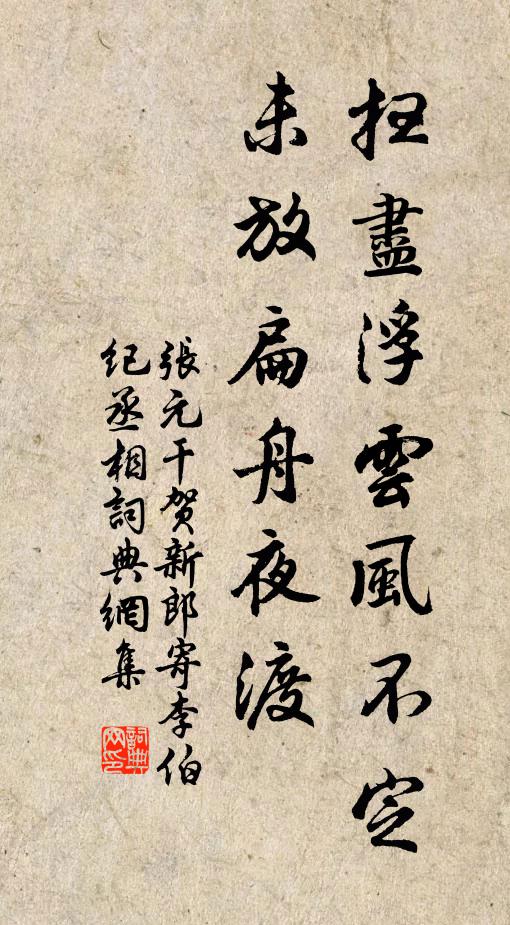 扫盡浮雲風不定
未放扁舟夜渡
張元干贺新郎寄李伯
纪丞相詞典網集
詞典
网印